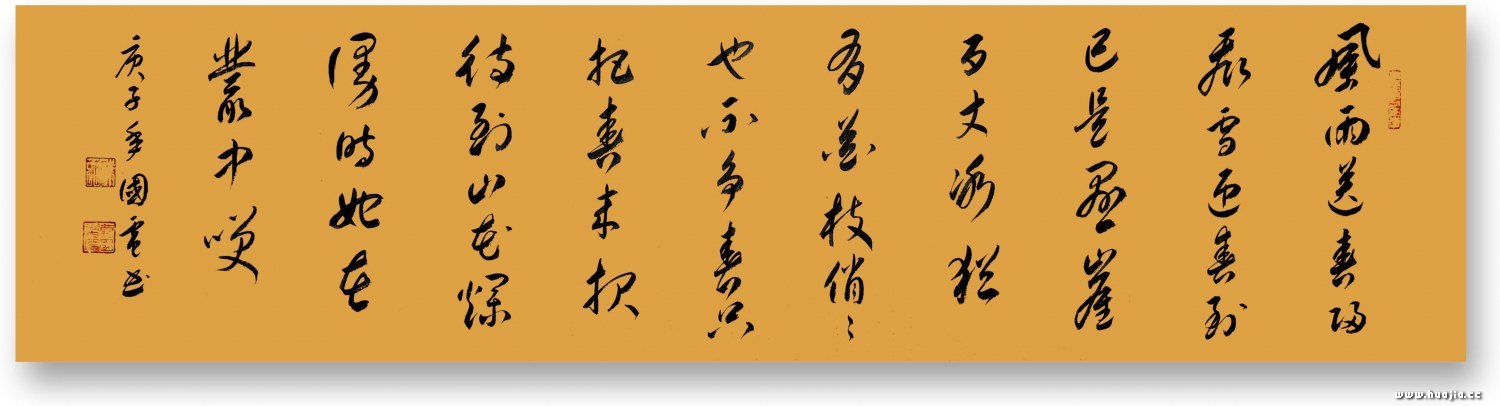 風雨送春歸
飛雪迎春到
已是懸崖
百丈冰猶
有花枝俏〻
也不争春只
把春来报
待到山花爛
漫時她在
叢中咲
庚子年國雲书
www.huajia.cc